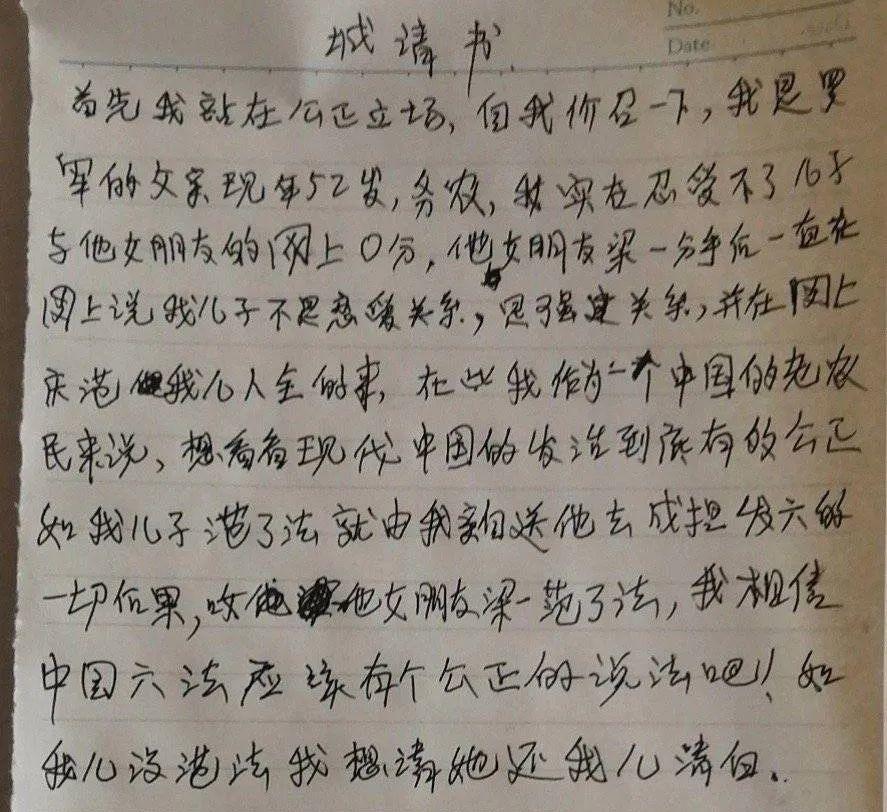 No.
Date
城请书
首先我站在公正立场,自我价召一下,我是罗
军的父亲现年52岁,务农,我实在忍受不了儿子
与他女朋友的网上0分,他女朋友梁一分手后一直在
网上说我儿子不是恋爱关系,是强建关系,并在网上
庆范我儿人全的事,在此我作为一个中国的老农
民来说,想看看现代中国的发法到底有的公正
如我儿子范了法就由我亲自送他去成担发六的
一切后果,他女朋友梁一范了法,我相信
中国六法应该有个公正的说法吧!如
我儿没范法我想请她还我儿清白..